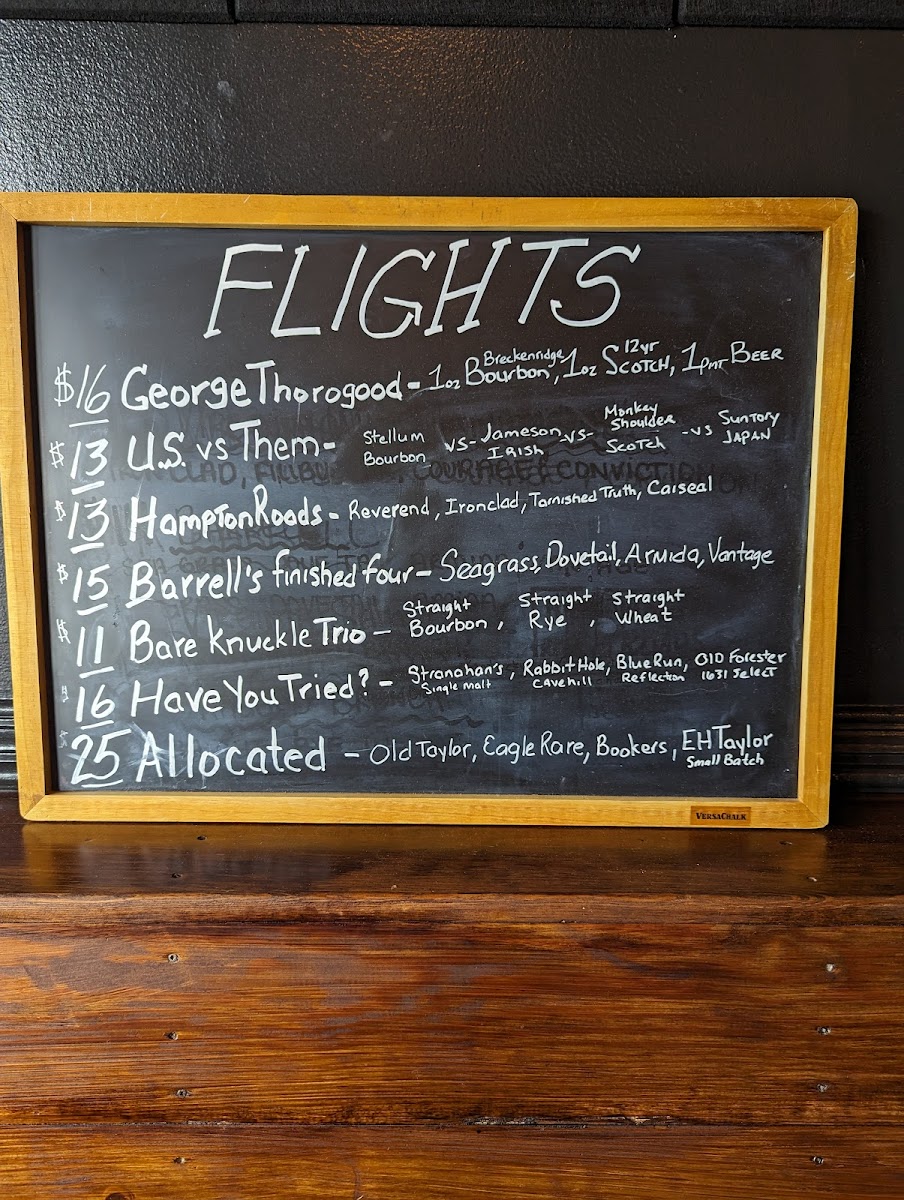 FLIGHTS
$16 George Thorogood - 1oz Breckenridge Bourbon, 1oz 12yr Scotch, 1pint Beer
$13 U.S. vs Them - Stellum Bourbon -vs- Jameson Irish -vs- Monkey Shoulder Scotch -vs Suntory Japan
$13 Hampton Roads - Reverend, Ironclad, Tarnished Truth, Caiseal
$15 Barrell's finished four - Seagrass, Dovetail, Armida, Vantage
$11 Bare Knuckle Trio - Straight Bourbon, Straight Rye, Straight Wheat
$16 Have You Tried? - Stranahan's Single Malt, Rabbit Hole Cavehill, Blue Run Reflection, Old Forester 1631 Select
$25 Allocated - Old Taylor, Eagle Rare, Bookers, EH Taylor Small Batch
VERSACHALK